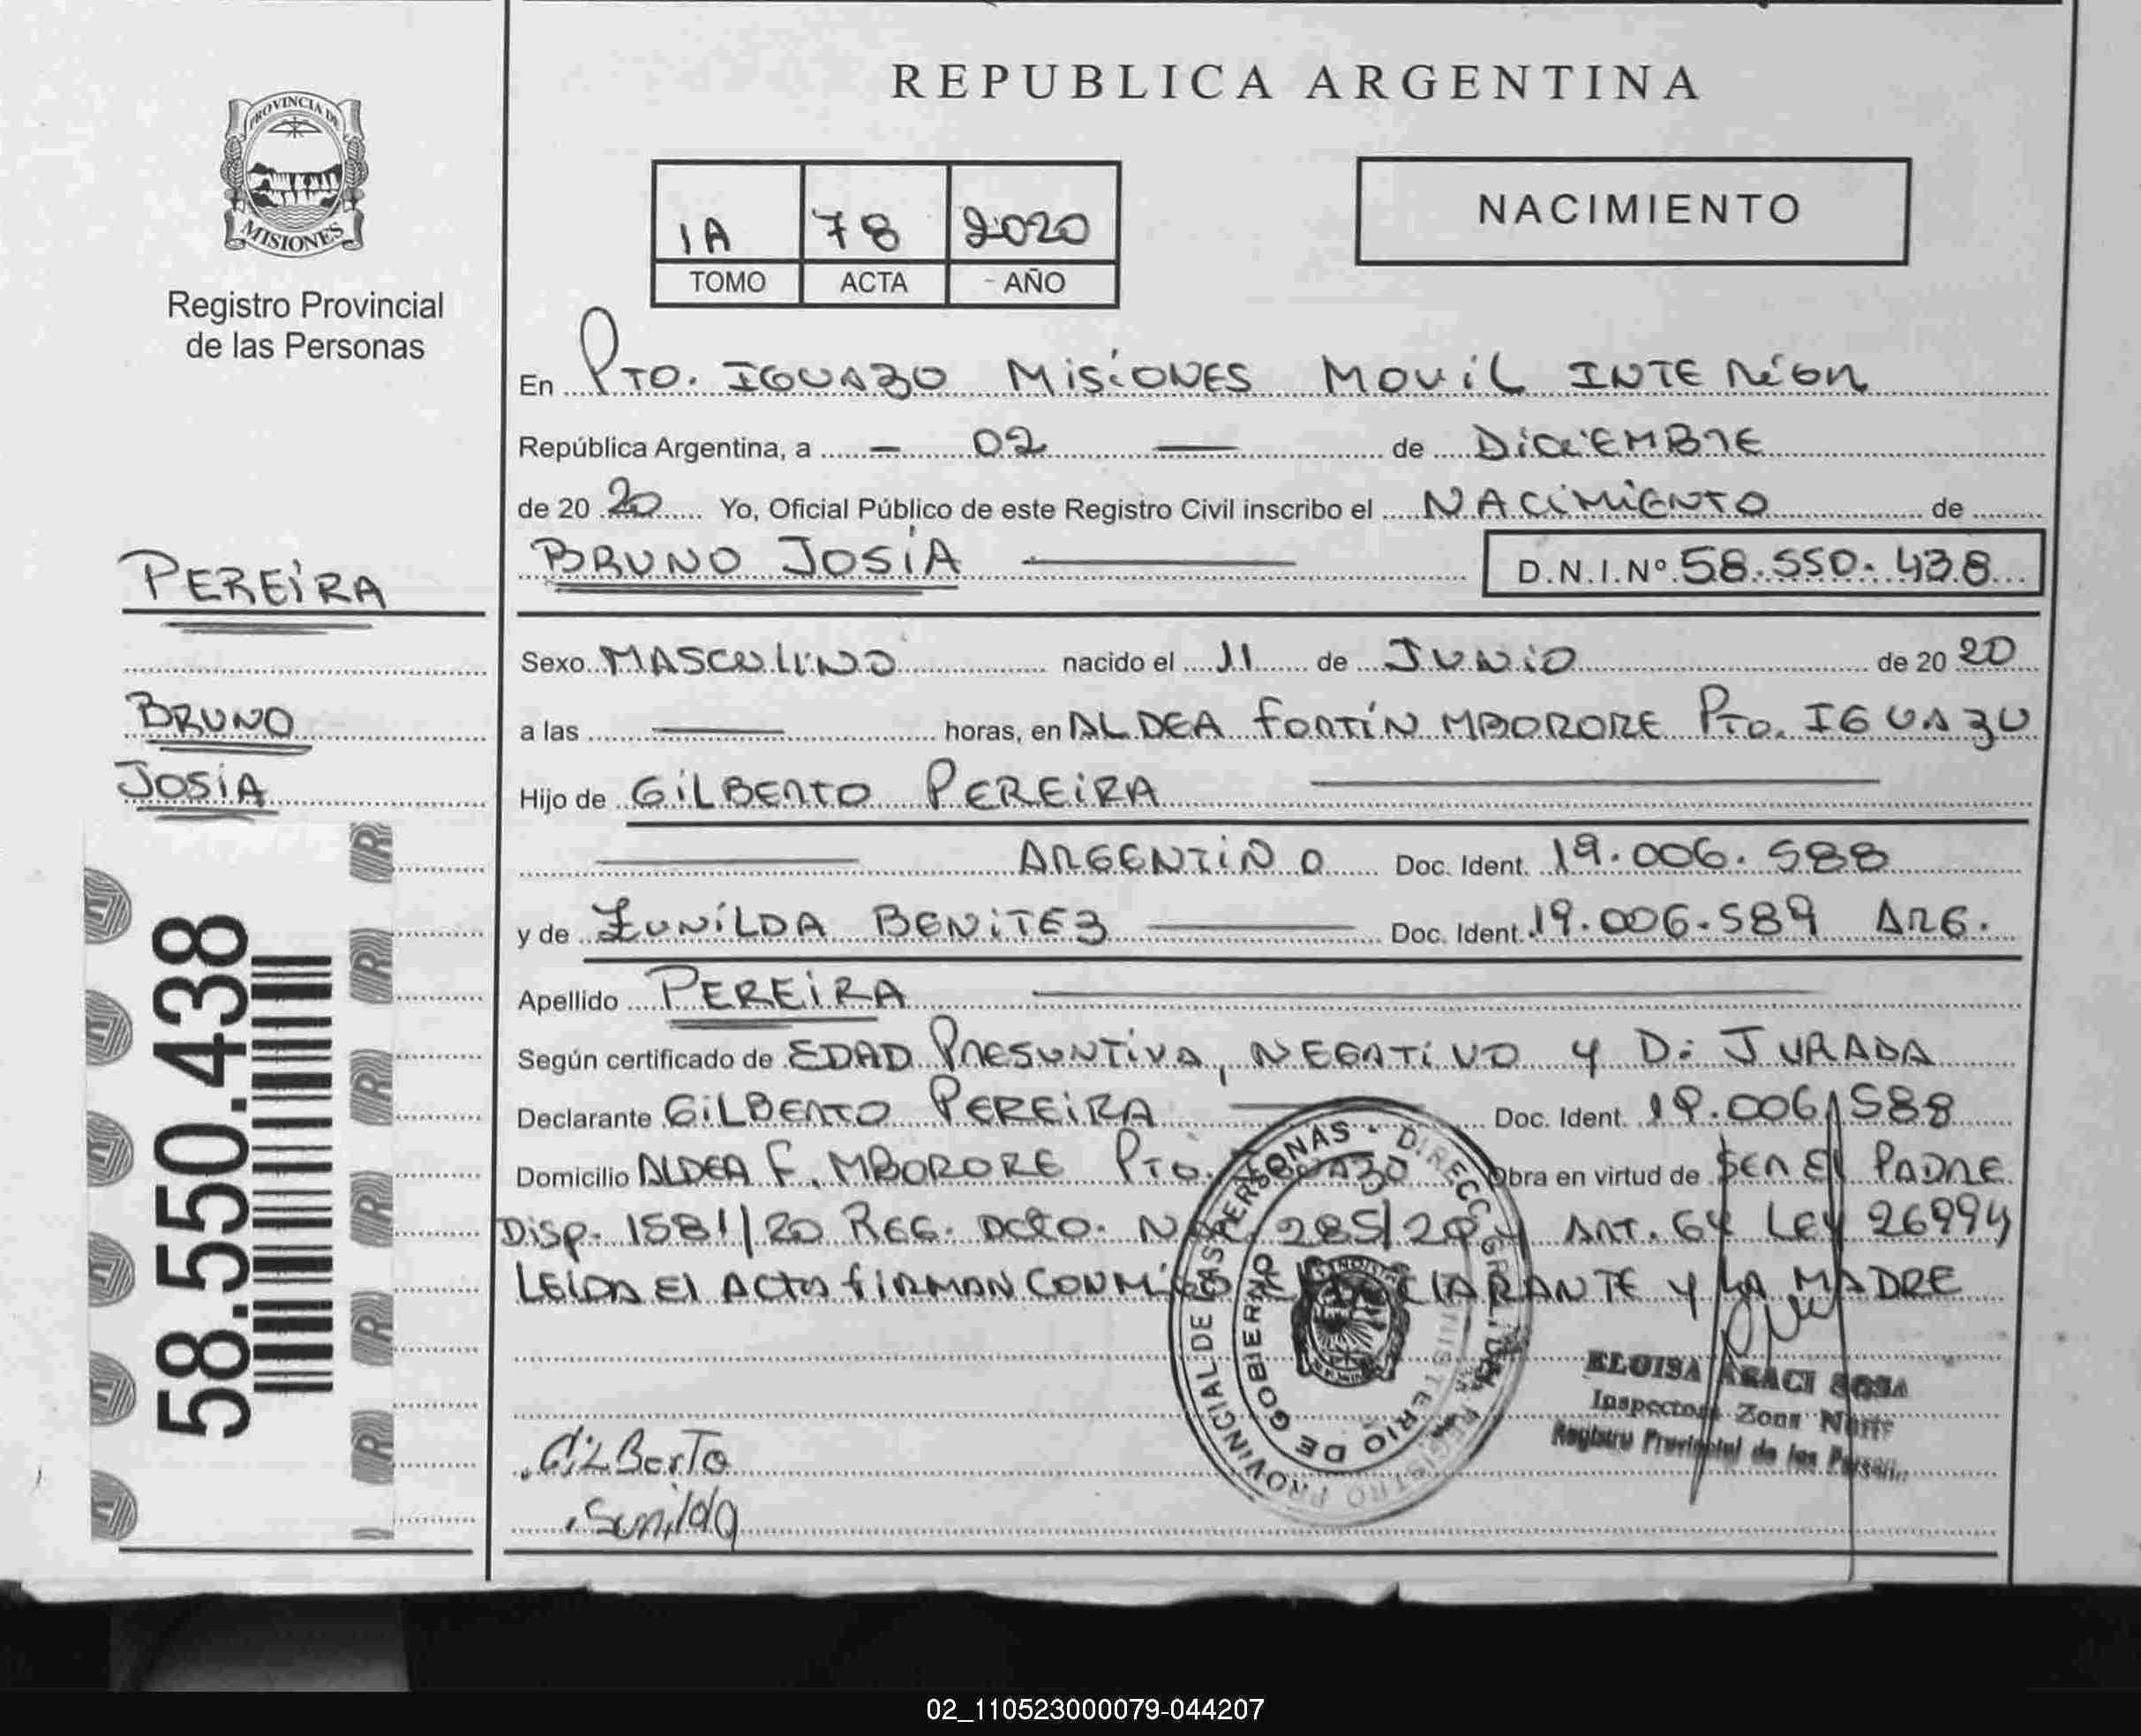 REPUBLICA ARGENTINA
PROVINCIA DE
MISIONES
Registro Provincial
de las Personas
1A 78 2020
TOMO ACTA AÑO
NACIMIENTO
En Pto. IGUAZO MISIONES MOVIL INTERIOR
República Argentina, a - 02 — de DICIEMBRE
de 20 20 Yo, Oficial Público de este Registro Civil inscribo el NACIMIENTO de
BRUNO JOSIA — D.N.I.Nº 58.550.438
PEREIRA
BRUNO
JOSIA
58.550.438
Sexo MASCULINO nacido el 11 de JUNIO de 20 20
a las — horas, en ALDEA FORTÍN MBORORE Pto. IGUAZU
Hijo de GILBERTO PEREIRA —
— ARGENTINO Doc. Ident. 19.006.588
y de ZUNILDA BENITEZ — Doc. Ident. 19.006.589 ARG.
Apellido PEREIRA —
Según certificado de EDAD PRESUNTIVA, NEGATIVO Y D. JURADA
Declarante GILBERTO PEREIRA — Doc. Ident. 19.006.588
Domicilio ALDEA F. MBORORE Pto. Obra en virtud de SER EL PADRE
Disp. 1581/20 REG. DCTO. 285/20 Y ART. 64 LEY 26994
LEIDA EL ACTA FIRMAN CONMIGO DECLARANTE Y LA MADRE
GILBerTo
Sunilda
REGISTRO PROVINCIAL DE LAS PERSONAS
MINISTERIO DE GOBIERNO
ELOISA ARACI SOSA
Inspectora Zona Norte
Registro Provincial de las Person.
02_110523000079-044207